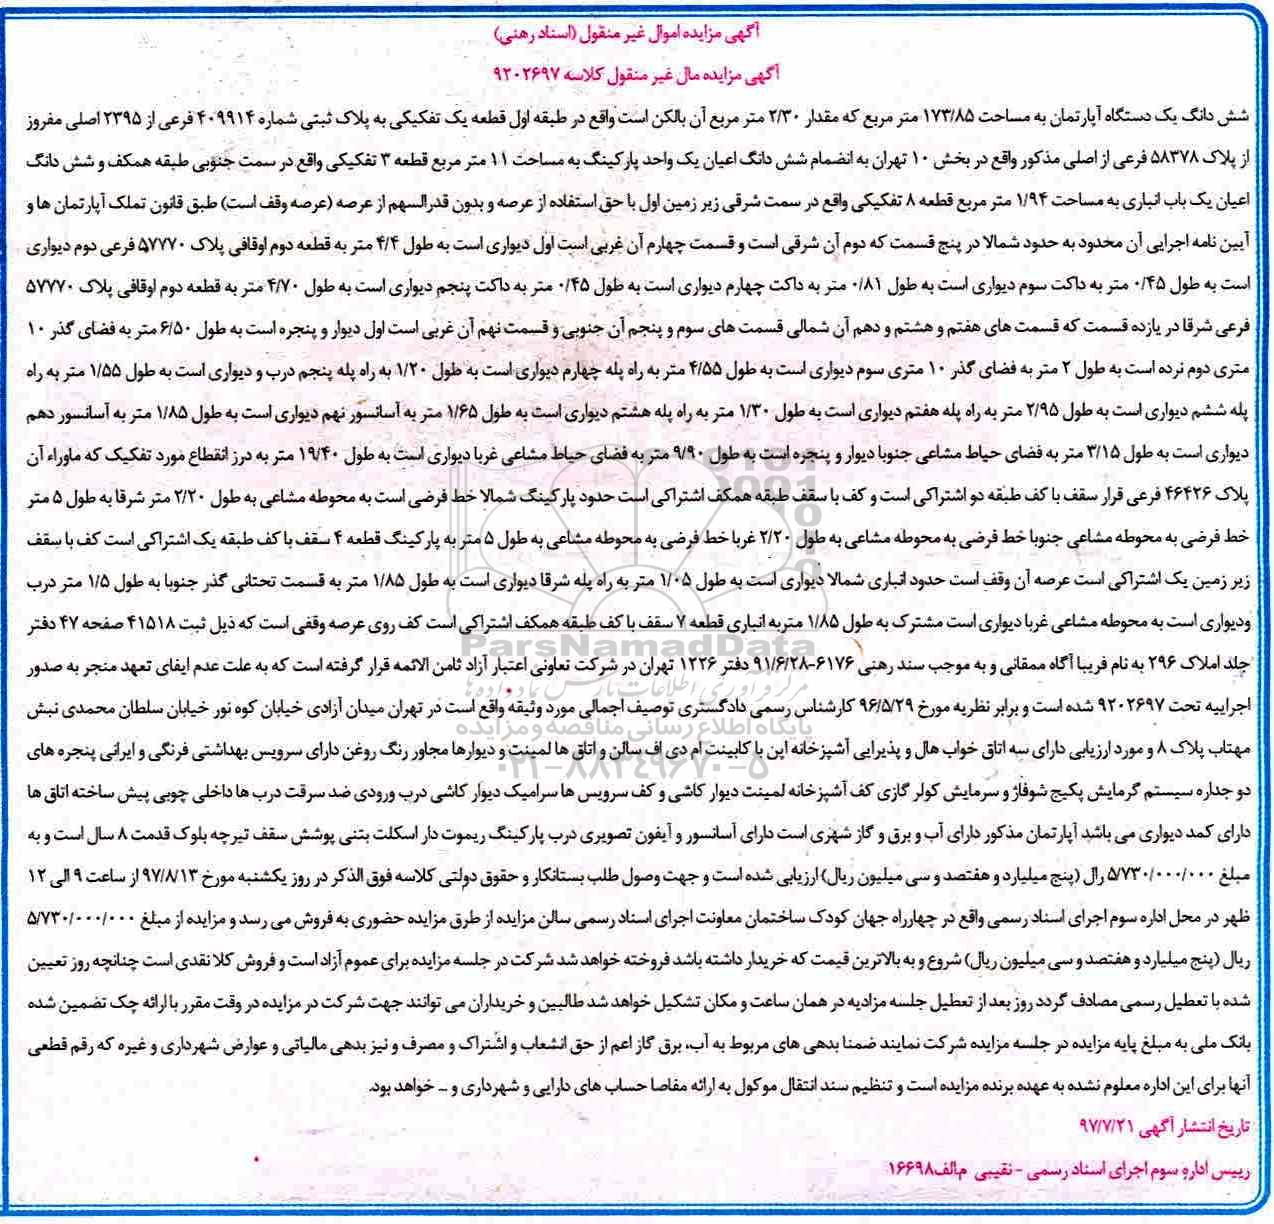 آگهی مزایده اموال غیر منقول (اسناد رهنی)
آگهی مزایده مال غیر منقول کلاسه ۹۲۰۲۶۹۷
شش دانگ یک دستگاه آپارتمان به مساحت ۱۷۳/۸۵ متر مربع که مقدار ۲/۳۰ متر مربع آن بالکن است واقع در طبقه اول قطعه یک تفکیکی به پلاک ثبتی شماره ۴۰۹۹۱۴ فرعی از ۲۳۹۵ اصلی مفروز
از پلاک ۵۸۳۷۸ فرعی از اصلی مذکور واقع در بخش ۱۰ تهران به انضمام شش دانگ اعیان یک واحد پارکینگ به مساحت ۱۱ متر مربع قطعه ۳ تفکیکی واقع در سمت جنوبی طبقه همکف و شش دانگ
اعیان یک باب انباری به مساحت ۱/۹۴ متر مربع قطعه ۸ تفکیکی واقع در سمت شرقی زیر زمین اول با حق استفاده از عرصه و بدون قدرالسهم از عرصه (عرصه وقف است) طبق قانون تملک آپارتمان ها و
آیین نامه اجرایی آن محدود به حدود شمالا در پنج قسمت که دوم آن شرقی است و قسمت چهارم آن غربی است اول دیواری است به طول ۴/۴ متر به قطعه دوم اوقافی پلاک ۵۷۷۷۰ فرعی دوم دیواری
است به طول ۰/۴۵ متر به داکت سوم دیواری است به طول ۰/۸۱ متر به داکت چهارم دیواری است به طول ۰/۴۵ متر به داکت پنجم دیواری است به طول ۴/۷۰ متر به قطعه دوم اوقافی پلاک ۵۷۷۷۰
فرعی شرقا در یازده قسمت که قسمت های هفتم و هشتم و دهم آن شمالی قسمت های سوم و پنجم آن جنوبی و قسمت نهم آن غربی است اول دیوار و پنجره است به طول ۶/۵۰ متر به فضای گذر ۱۰
متری دوم نرده است به طول ۲ متر به فضای گذر ۱۰ متری سوم دیواری است به طول ۴/۵۵ متر به راه پله چهارم دیواری است به طول ۱/۲۰ به راه پله پنجم درب و دیواری است به طول ۱/۵۵ متر به راه
پله ششم دیواری است به طول ۲/۹۵ متر به راه پله هفتم دیواری است به طول ۱/۳۰ متر به راه پله هشتم دیواری است به طول ۱/۶۵ متر به آسانسور نهم دیواری است به طول ۱/۸۵ متر به آسانسور دهم
دیواری است به طول ۳/۱۵ متر به فضای حیاط مشاعی جنوبا دیوار و پنجره است به طول ۹/۹۰ متر به فضای حیاط مشاعی غربا دیواری است به طول ۱۹/۴۰ متر به درز انقطاع مورد تفکیک که ماوراء آن
پلاک ۴۶۴۲۶ فرعی قرار سقف با کف طبقه دو اشتراکی است و کف با سقف طبقه همکف اشتراکی است حدود پارکینگ شمالا خط فرضی است به محوطه مشاعی به طول ۲/۲۰ متر شرقا به طول ۵ متر
خط فرضی به محوطه مشاعی جنوبا خط فرضی به محوطه مشاعی به طول ۲/۲۰ غربا خط فرضی به محوطه مشاعی به طول ۵ متر به پارکینگ قطعه ۴ سقف با کف طبقه یک اشتراکی است کف با سقف
زیر زمین یک اشتراکی است عرصه آن وقف است حدود انباری شمالا دیواری است به طول ۱/۰۵ متر به راه پله شرقا دیواری است به طول ۱/۸۵ متر به قسمت تحتانی گذر جنوبا به طول ۱/۵ متر درب
ودیواری است به محوطه مشاعی غربا دیواری است مشترک به طول ۱/۸۵ متربه انباری قطعه ۷ سقف با کف طبقه همکف اشتراکی است کف روی عرصه وقفی است که ذیل ثبت ۴۱۵۱۸ صفحه ۴۷ دفتر
جلد املاک ۲۹۶ به نام فریبا آگاه ممقانی و به موجب سند رهنی ۶۱۷۶-۹۱/۶/۲۸ دفتر ۱۲۲۶ تهران در شرکت تعاونی اعتبار آزاد ثامن الائمه قرار گرفته است که به علت عدم ایفای تعهد منجر به صدور
اجراییه تحت ۹۲۰۲۶۹۷ شده است و برابر نظریه مورخ ۹۶/۵/۲۹ کارشناس رسمی دادگستری توصیف اجمالی مورد وثیقه واقع است در تهران میدان آزادی خیابان کوه نور خیابان سلطان محمدی نبش
مهتاب پلاک ۸ و مورد ارزیابی دارای سه اتاق خواب هال و پذیرایی آشپزخانه اپن با کابینت ام دی اف سالن و اتاق ها لمینت و دیوارها مجاور رنگ روغن دارای سرویس بهداشتی فرنگی و ایرانی پنجره های
دو جداره سیستم گرمایش پکیج شوفاژ و سرمایش کولر گازی کف آشپزخانه لمینت دیوار کاشی و کف سرویس ها سرامیک دیوار کاشی درب ورودی ضد سرقت درب ها داخلی چوبی پیش ساخته اتاق ها
دارای کمد دیواری می باشد آپارتمان مذکور دارای آب و برق و گاز شهری است دارای آسانسور و آیفون تصویری درب پارکینگ ریموت دار اسکلت بتنی پوشش سقف تیرچه بلوک قدمت ۸ سال است و به
مبلغ ۵/۷۳۰/۰۰۰/۰۰۰ رال (پنج میلیارد و هفتصد و سی میلیون ریال) ارزیابی شده است و جهت وصول طلب بستانکار و حقوق دولتی کلاسه فوق الذکر در روز یکشنبه مورخ ۹۷/۸/۱۳ از ساعت ۹ الی ۱۲
ظهر در محل اداره سوم اجرای اسناد رسمی واقع در چهارراه جهان کودک ساختمان معاونت اجرای اسناد رسمی سالن مزایده از طرق مزایده حضوری به فروش می رسد و مزایده از مبلغ ۵/۷۳۰/۰۰۰/۰۰۰
ریال (پنج میلیارد و هفتصد و سی میلیون ریال) شروع و به بالاترین قیمت که خریدار داشته باشد فروخته خواهد شد شرکت در جلسه مزایده برای عموم آزاد است و فروش کلا نقدی است چنانچه روز تعیین
شده با تعطیل رسمی مصادف گردد روز بعد از تعطیل جلسه مزادیه در همان ساعت و مکان تشکیل خواهد شد طالبین و خریداران می توانند جهت شرکت در مزایده در وقت مقرر با ارائه چک تضمین شده
بانک ملی به مبلغ پایه مزایده در جلسه مزایده شرکت نمایند ضمنا بدهی های مربوط به آب، برق گاز اعم از حق انشعاب و اشتراک و مصرف و نیز بدهی مالیاتی و عوارض شهرداری و غیره که رقم قطعی
آنها برای این اداره معلوم نشده به عهده برنده مزایده است و تنظیم سند انتقال موکول به ارائه مفاصا حساب های دارایی و شهرداری و ... خواهد بود.
تاریخ انتشار آگهی ۹۷/۷/۲۱
رییس اداره سوم اجرای اسناد رسمی - نقیبی م.الف۱۶۶۹۸
ParsNamadData
مرکز فرآوری اطلاعات پارس نماد داده ها
پایگاه اطلاع رسانی مناقصه و مزایده
۰۲۱-۸۸۳۴۹۶۷۰-۵